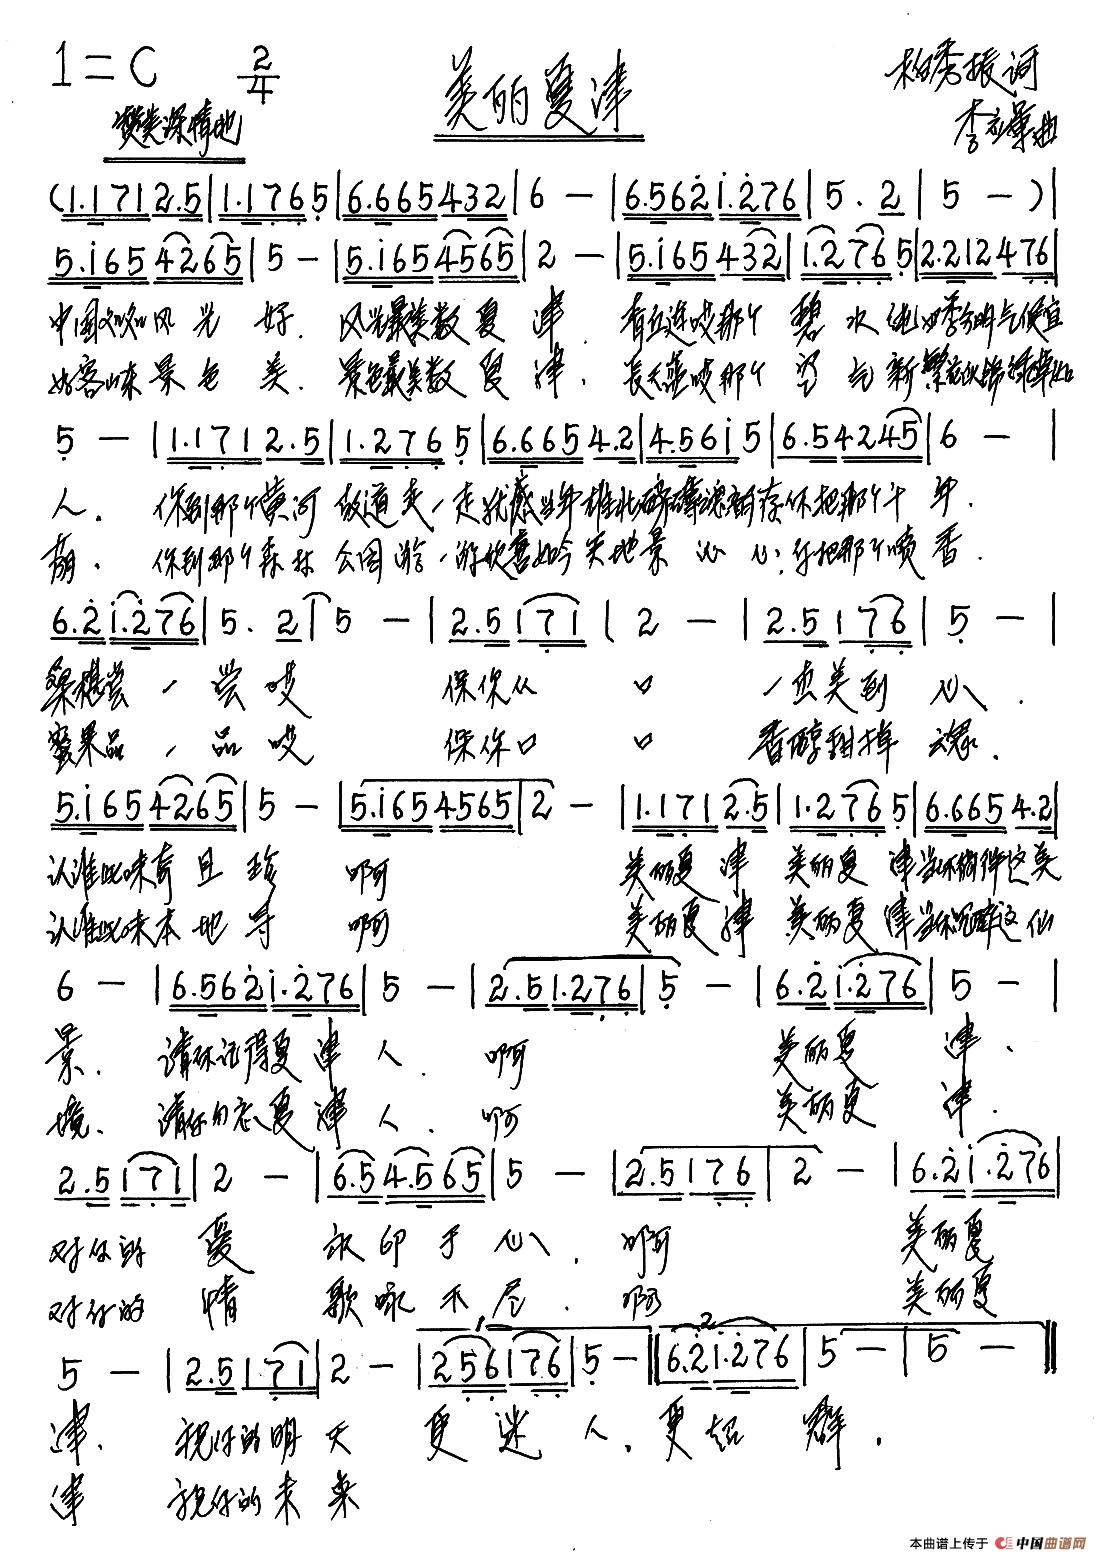 1=C 2/4 美丽夏津 柏秀振词
赞美深情地 李 曲
(1.171 2.5|1.176 5|6.665 432|6 —|6.562 1.276|5. 2|5 —)|
5.165 4265|5 —|5.165 4565|2 —|5.165 432|1.276 5|2.212 476|
中国 风光 好. 风光最美数夏 津. 哎那个 碧 水 四季分明气候宜
好客山东景色 美. 景色最美数夏 津. 长天蓝哎那个 空 气新繁花似锦绿草如
5 —|1.171 2.5|1.276 5|6.665 4.2|4.561 5|6.5 4245|6 —|
人. 你到那个黄河 故道走一走 感 你把那个千 年.
荫. 你到那个森林 公园游一游 景 沁心;你把那个喷 香.
6.2 1.276|5. 2|5 —|2.5 171|2 —|2.5 176|5 —|
桑椹尝 一尝哎 保你从 口 一 美到 心.
蜜果品 一品哎 保你口 口 香醇甜掉 魂.
5.165 4265|5 —|5.165 4565|2 —|1.171 2.5|1.276 5|6.665 4.2|
认准此味奇且珍 啊 美丽夏 津 美丽夏 津当你 这美
认准此味本地寻 啊 美丽夏 津 美丽夏 津当你 这仙
6 —|6.562 1.276|5 —|2.5 1.276|5 —|6.2 1.276|5 —|
景. 请你记得夏津 人. 啊 美丽夏 津、
境. 请你勿忘夏津 人. 啊 美丽夏 津.
2.5 171|2 —|6.5 4.565|5 —|2.5 176|2 —|6.2 1.276|
对你的 爱 永印于 心. 啊 美丽夏
对你的 情 歌咏不 尽. 啊 美丽夏
1 2
5 —|2.5 171|2 —|256 176|5 —‖6.2 1.276|5 —|5 —‖
津. 祝你的明 天 更 迷 人. 更 超 群.
津 祝你的未 来
本曲谱上传于 中国曲谱网